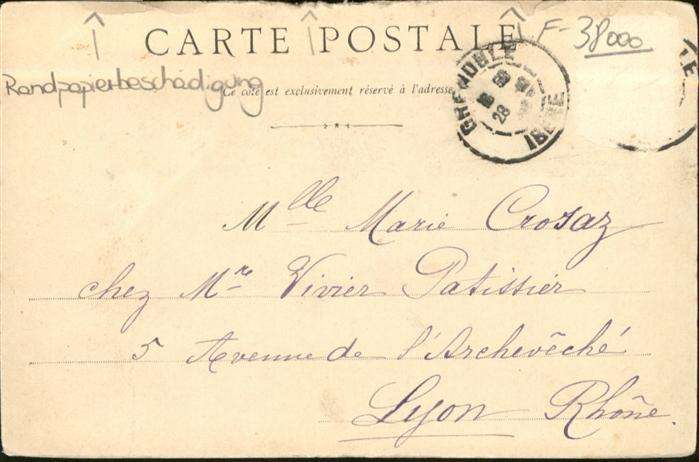 CARTE POSTALE
F-38000
Randpapierbeschädigung
Ce côté est exclusivement réservé à l'adresse
GRENOBLE
28
ISERE
Mlle Marie Crosaz
chez Mr Vivier Patissier
5 Avenue de l'Archevêché
Lyon Rhône.